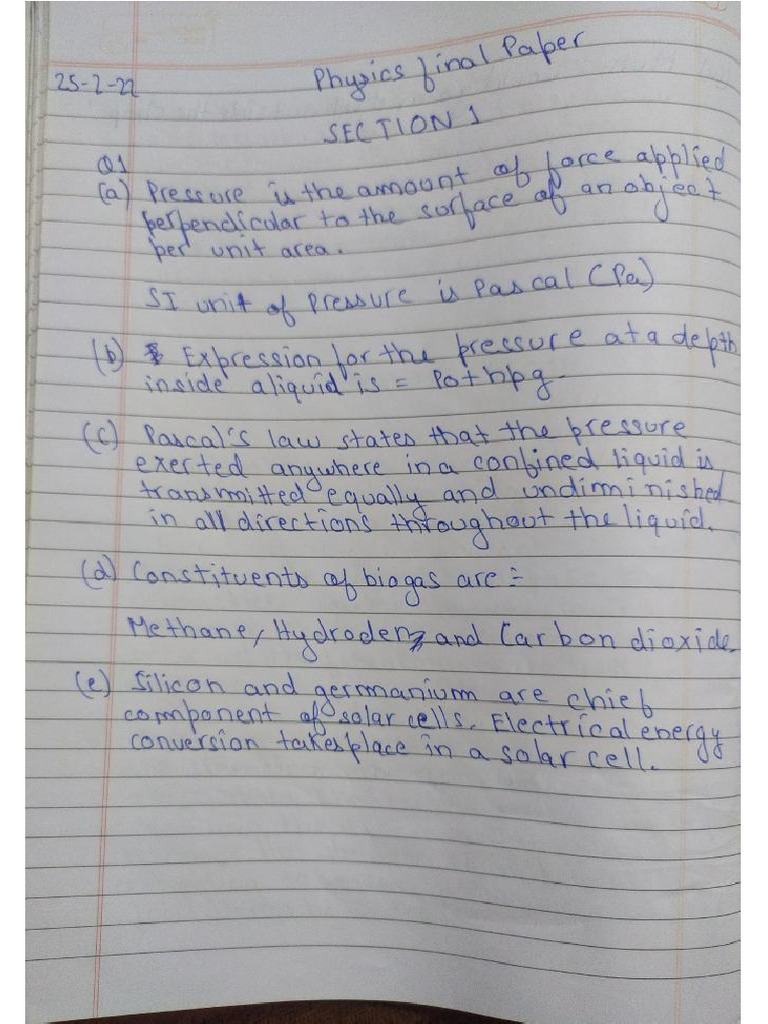 25-2-22
Physics final Paper
SECTION 1
Q1
(a) Pressure is the amount of force applied
perpendicular to the surface of an object
per unit area.
SI unit of Pressure is Pascal (Pa)
(b) Expression for the pressure at a depth
inside a liquid is = Po+hρg
(c) Pascal's law states that the pressure
exerted anywhere in a confined liquid is
transmitted equally and undiminished
in all directions throughout the liquid.
(d) Constituents of biogas are :-
Methane, Hydroden, and Carbon dioxide.
(e) Silicon and germanium are chief
component of solar cells. Electrical energy
conversion takes place in a solar cell.